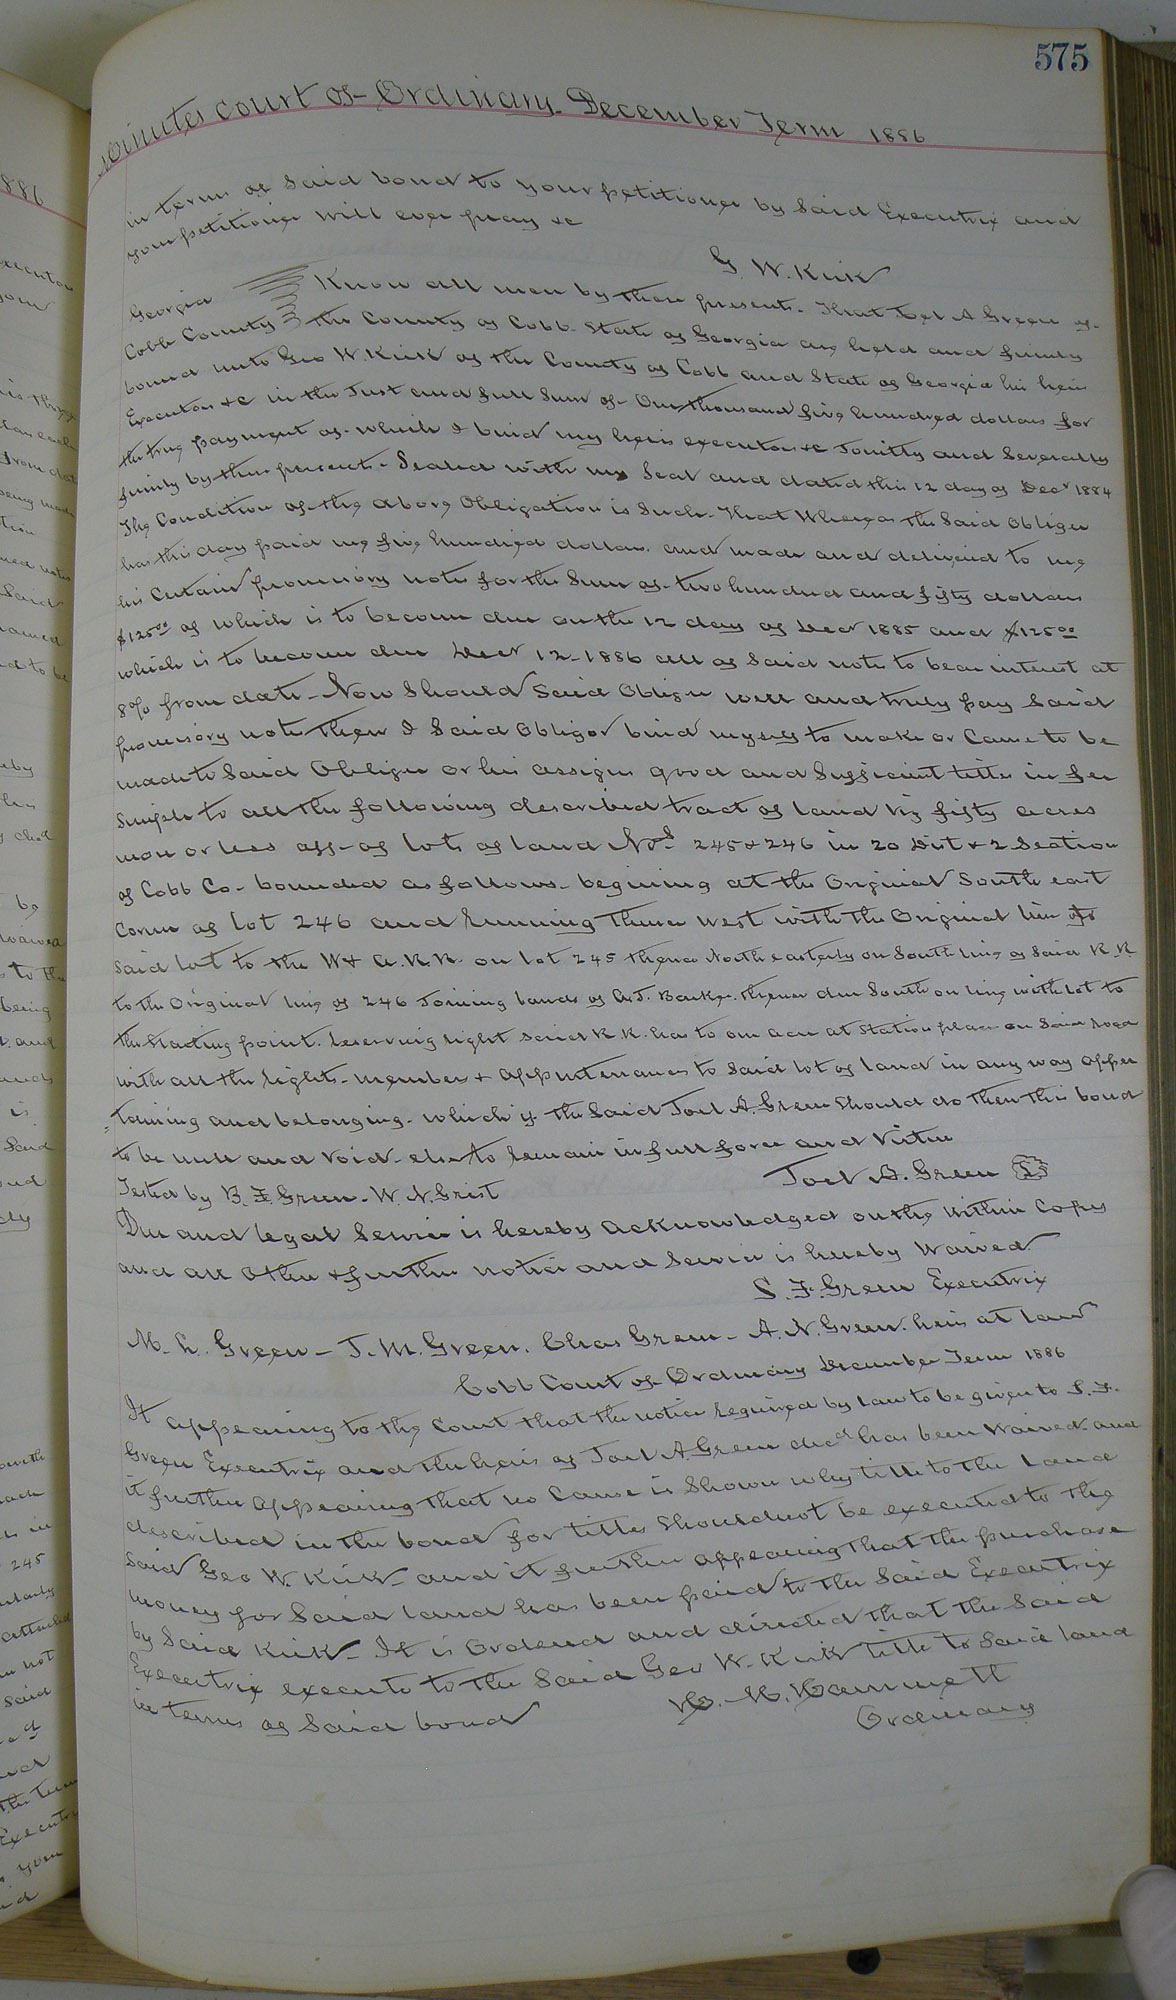 575
Minutes Court of Ordinary December Term 1886
in terms of Said bond to your petitioner by Said Executrix and
your petitioner will ever pray &c
G. W. Kirk
Georgia Know all men by these presents. That Joel A Green of
Cobb County the County of Cobb State of Georgia am held and firmly
bound unto Geo W. Kirk of the County of Cobb and State of Georgia his heirs
Executors &c in the Just and full Sum of One thousand five hundred dollars for
the true payment of which I bind my heirs executors &c Jointly and Severally
firmly by these presents. Sealed with my Seal and dated this 12 day of Decr 1884
The Condition of the above Obligation is Such. That Whereas the Said Obligee
has this day paid me five hundred dollars. and made and delivered to me
his certain promisory notes for the Sum of two hundred and fifty dollars
$125.00 of which is to become due on the 12 day of Decr 1885 and $125.00
which is to become due Decr 12-1886 all of Said note to bear interest at
8% from date - Now Should Said Obligee well and truly pay Said
promisory note then I Said Obligor bind myself to make or Cause to be
made to Said Obligee or his assigns good and Sufficient titles in fee
Simple to all the following described tract of land viz fifty acres
more or less off of lots of land Nos 245 & 246 in 20 Dist & 2 Section
of Cobb Co. bounded as follows. begining at the Original South east
Corner of lot 246 and running thence West with the Original line of
Said lot to the W & A. R. R. on lot 245 thence North easterly on South line of Said R. R
to the Original line of 246 Joining lands of A. J. Barker. thence due South on line with lot to
the Starting point. Reserving right Said R. R. has to one acre at Station place on Said road
with all the rights. members & appurtenances to Said lot of land in any way apper
=taining and belonging. which if the Said Joel A. Green Should do then this bond
to be null and void. else to remain in full force and virtue
Tested by B. F. Green. W. N. Grist Joel A. Green LS
Due and legal Service is hereby acknowledged on the within Copy
and all other & further notice and Service is hereby Waived.
S. F. Green Executrix
M. L. Green - J. M. Green. Chas Green - A. N. Green. heirs at law
Cobb Court of Ordinary December Term 1886
It appearing to the Court that the notice required by law to be given to S. F.
Green Executrix and the heirs of Joel A. Green decd has been Waived. and
it further appearing that no Cause is Shown why title to the land
described in the bond for titles Should not be executed to the
Said Geo W. Kirk - and it further appearing that the purchase
money for Said land has been paid to the Said Executrix
by Said Kirk - It is Ordered and directed that the Said
Executrix execute to the Said Geo W. Kirk title to Said land
in terms of Said bond
H. M. Hammett
Ordinary